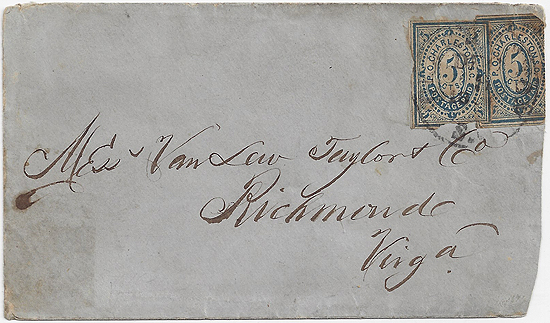 P.O. CHARLESTON. S.C.
5
CTS
POSTAGE PAID
P.O. CHARLESTON
5
CTS
POSTAGE PAID
Mess Van Lew Taylor & Co
Richmond
Virga